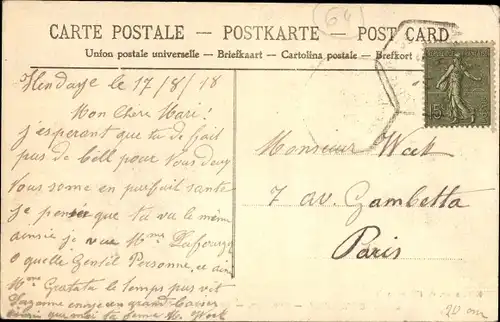 (64)
CARTE POSTALE — POSTKARTE — POST CARD
Union postale universelle — Briefkaart — Cartolina postale — Brefkort
Hendaye le 17/8/18
Mon Chere Mari!
j'esperant que tu de fait
pus de bill pour Vous deux
Vous some en parfait sante
je penser que ta va le même
ainsie je vue Mme
o quelle Gentil Personne, ce ain
Mme Gratuta le temps pus vit
Suzanne envoie en grand baiser
ainsi que moi ta femme M. Week
Monsieur Week
7 av. Gambetta
Paris
15
20 om